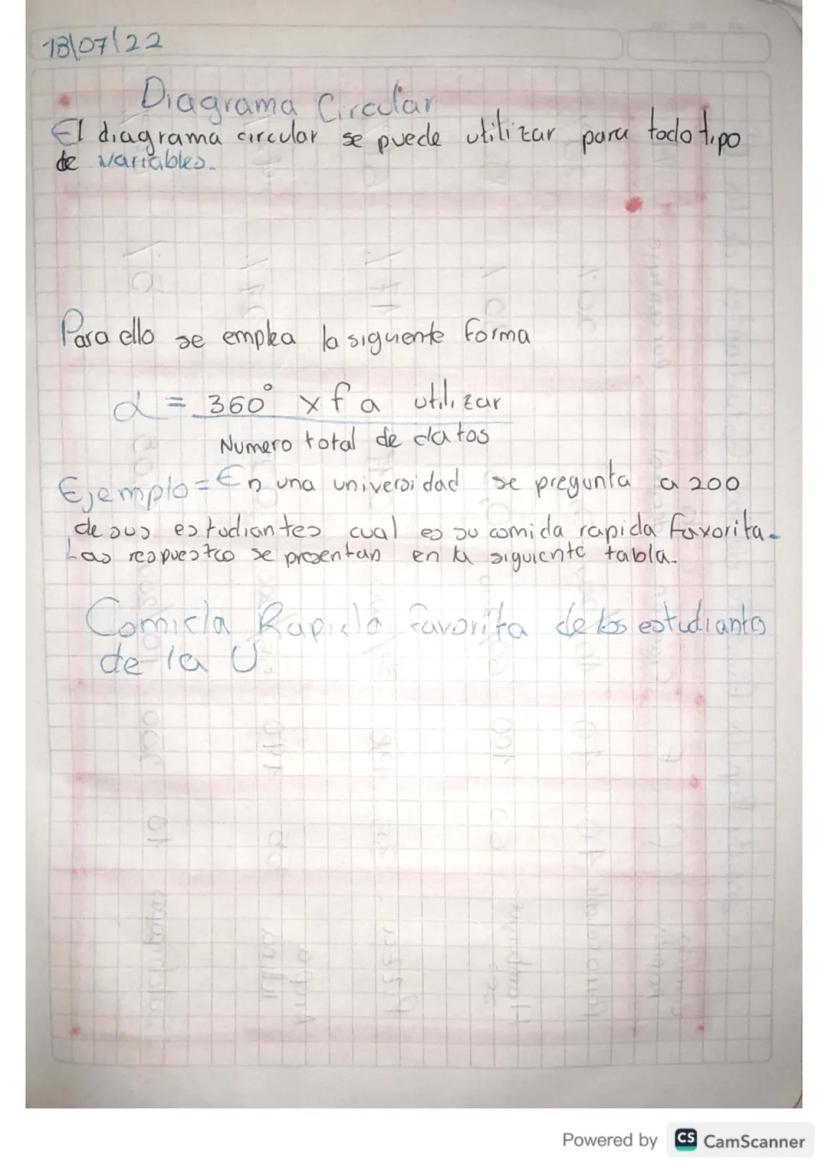 18\07\22
Diagrama Circular
El diagrama circular se puede utilizar para todo tipo
de variables.
Para ello se emplea la siguiente forma
α = 360° x f a utilizar
Numero total de datos
Ejemplo = En una universidad se pregunta a 200
de sus estudiantes cual es su comida rapida favorita.
Las se presentan en la siguiente tabla.
Comida Rapida favorita de los estudiantes
de la U.
Powered by CS CamScanner